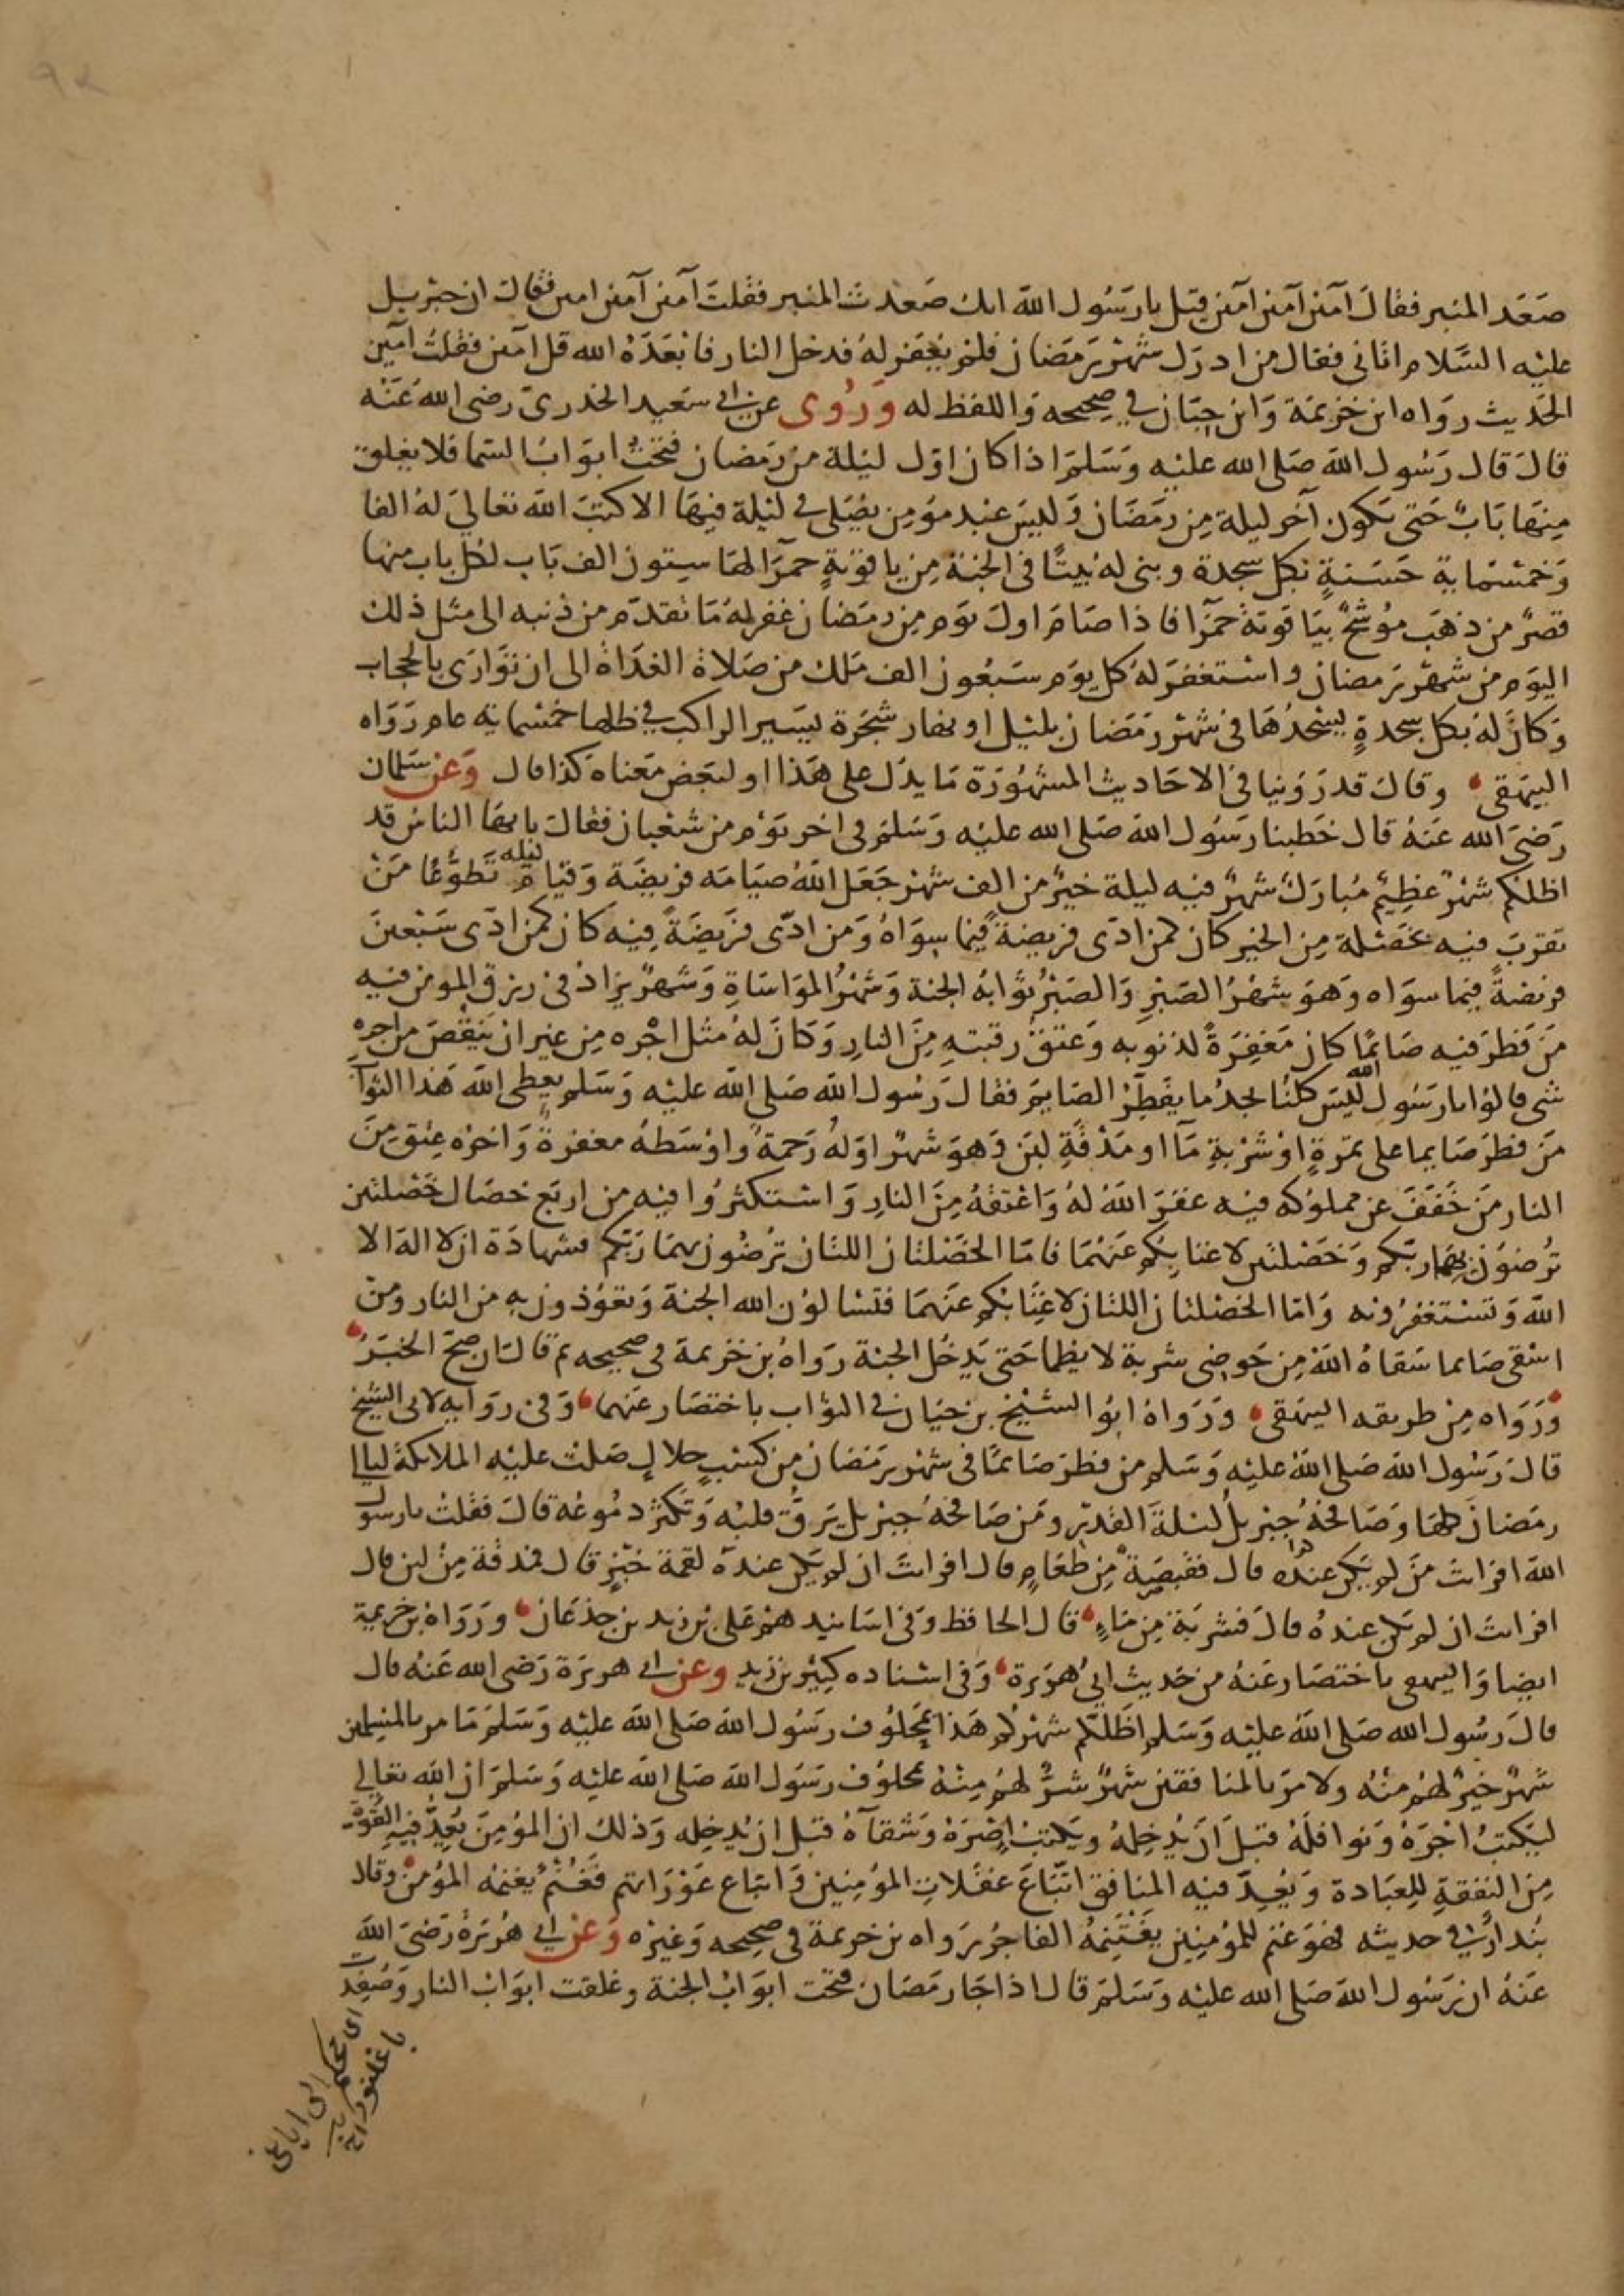 صَعَد المنبر فقالَ آمين آمين آمين قيل يا رَسُول الله انك صَعدت المنبر فقلتَ آمين آمين امين فقال ان جبريل
عليْه السَّلام اتاني فقال من ادرَك شهْر رَمَضان فلم يُغفرْ لهُ فدخل النار فابْعَدَهُ الله قل آمين فقلتُ آمين
الحَديث روَاه ابن خزيمَة وَابن حِبّان في صحِيحِه وَاللفظ له وَرُوى عن ابي سَعيد الخدرىّ رضى الله عَنْه
قالَ قال رَسُول اللهَ صَلى الله عليْه وَسَلمَ اذا كان اوّل ليْلة من رَمضان فتحتْ ابوَابُ السَّما فلا يغلق
مِنهَا بَابٌ حَتى يَكون آخر ليلة مِن رمَضَان وَليسَ عبْد مؤمِن يُصَلى في ليْلة فيهَا الا كتبَ اللهَ تعَالىَ لهُ الفا
وَخمسْمايةِ حَسَنةٍ بكل سجدة وبنى له بَيتًا فى الجنة مِن ياقوتةٍ حمرَا لهَا ستون الف بَاب لكل باب منها
قصرٌ من ذهَب موُشَّحٌ بيَاقوتة حمرَا فاذا صَامَ اولَ يوَم مِن رمَضان غفر لهُ مَا تقدّم من ذنبه الى مثل ذلك
اليوَم من شهْر رَمضان واستغفرَ لهُ كل يوَم سَبعُون الف مَلك من صَلاة الغدَاة الى ان تَوَارَى بالحجاب
وَكانَ لهُ بكل سجدةٍ يسْجُدُهَا فى شهْر رَمَضان بليْل او نهار شجَرة يسَير الراكب في ظلها خمسماية عام روَاه
البيَهقي وقال قد رَوَينا فى الاحَاديث المشهُورَة مَا يدُل على هَذا او لبَعض معَناه كذا قال وَعَن سَلمان
رَضىَ الله عَنهُ قال خَطبنا رَسُول اللهَ صَلى الله عليْه وَسَلمَ في اخر يَوْم من شعْبان فقالَ يا ايهَا الناسُ قد
اظلكم شهْرٌ عظيْمٌ مُبارَكٌ شهرٌ فيْه ليلة خيْرٌ من الف شهْر جَعَل اللهُ صيَامَه فريضَة وَقيام ليله تَطوّعًا مَنْ
تقربَ فيْه بخصْلة مِن الخيْر كان كمن ادّى فريضةً فيما سِوَاهُ وَمَن ادّى فرَيضَةً فيْه كان كمن ادّى سَبْعينَ
فريضةً فيما سوَاه وَهوَ شهْرُ الصَبْرِ وَالصَبْرُ ثوَابهُ الجنة وَشهْرُ الموَاسَاةِ وَشهرٌ يزاد فى رزق المؤمن فيْه
مَن فطرَ فيْه صَائمًا كان مَغفِرَةً لذنوبه وَعتق رقبتهِ مِنَ النارِ وَكانَ لهُ مثل اجْره مِن غير ان يَنقصَ من اجرهِ
شي قالوُا يا رَسُول الله لَيسَ كلنُا يَجدُ ما يفَطِرُ الصَايمَ فقالَ رَسُول اللهَ صَلى اللهَ عليْه وَسَلم يعطى اللهَ هَذا الثوابَ
مَن فطرَ صَايما على تمرَةٍ اوْ شرْبةِ مآا او مَذْقةِ لبَن وَهوَ شهرٌ اوَلهُ رَحمَة وَاوْسَطهُ مغفرةً وَاخرُه عِتق مِنَ
النار مَن خَففَ عن مملوُكه فيْه غفرَ اللهَُ لهُ وَاعْتقهُ مِنَ النارِ وَاستكثرُوا فيْه من اربَع خصَال خَصْلتيَن
تُرضوُن بهمَا ربّكم وَخَصْلتَين لا غنا بكم عَنهُمَا فامّا الخصَلتان اللتان ترُضُون بهمَا رَبّكم فشهادَة ان لا الهَ الا
اللهَ وَتسْتغفرُونه وَامّا الخصْلتان اللتان لا غِنَا بكم عنَهمَا فتسْالوُن الله الجنة وَتعَوّذون بهِ من النار ومَنْ
اسَْقى صَايما سَقاهُ اللهَُ مِن حَوضِى شربة لا يظما حَتى يَدخُل الجنة روَاهُ بن خزيمة في صحيحه ثم قال ان صحَّ الخبَرُ
وَرَوَاه مِن طريقه البيَهقي وَروَاهُ ابوُ الشيْخ بن حَيان في الثوَاب باختصَار عَنهما وَفى روَايهٍ لابي الشيخ
قالَ رَسُول اللهَ صَلى اللهَ عليْه وَسَلم من فطرَ صَائمًا فى شهْر رَمَضان مِن كسَبٍ حلالٍ صَلتْ عليْه الملائكة ليالي
رمَضانَ كلهَا وَصَافحَهُ جبْريلُ ليْلةَ القدْر ومَن صَافحَهُ جبْريل يَرقّ قلبُه وَتكثرْ دمُوعُه قالَ فقلتُ يا رسول
اللهَ افرايتَ مَن لم يَكن عندَه قال فقبصَة مِن طعَامٍ قال افرايتَ ان لم يَكن عندَه لقمة خبْز قال فمذقة مِنْ لبن قال
افرايت ان لم تكن عندهُ قالَ فشربَة مِن مَاءٍ قال الحافظ وَفى اسَانيد هم عَلى بن زيد بن جدْعَان وَروَاهُ بن خزيمة
ايضا وَالبيهقي باختصَار عَنهُ من حَديث ابي هرَيرة وَفى اسْناده كثير بن زيد وعن ابي هريرَة رَضى الله عَنهُ قال
قالَ رَسُول الله صَلى اللهَ عليْه وَسَلم اظَلكّم شهْركم هَذا بمَحْلوُف رسَوُل اللهَ صَلى اللهَ عليْه وَسَلمَ مَا مر بالمسْلمين
شهرٌ خيرٌ لهمُ منْهُ ولا مَرّ بالمنافقين شهرٌ شرٌّ لهمُ مِنْهُ بمحلوُف رسَوُل اللهَ صَلى اللهَ عليْه وَسَلمَ ان اللهَ تعَالي
ليَكتبُ اجْرَهُ وَنوافلَهُ قبلَ اَنْ يُدخِلهُ ويَكتبُ اِصْرَهُ وَشقآءهُ قبل ان يُدخِله وَذلكَ ان المؤمِنَ يُعِدّ فيهِ القُوَّة
مِن النفقةِ لِلعِبَادة وَيُعِدّ فيْه المنافق اتّبَاعَ غفلَاتِ المؤمِنِين وَاتباع عَوْرَاتهم فَغُنْمٌ يَغنمُه المؤمِنُ وقالَ
بُندارٌ فِي حديثه فهوَ غنم للمؤمِنِين يَغْتَنِمُهُ الفاجُر رَواه بن خزيمة في صحِيحه وَغيرْه وَعَن ابي هُريَرَةَ رَضىَ اللهَ
عَنهُ ان رَسُول اللهَ صَلى الله عليْه وَسَلمَ قال اذا جَا رمَضَان فتحَت ابوَابُ الجنة وغلقت ابوَابُ النار وَصُفّدَت